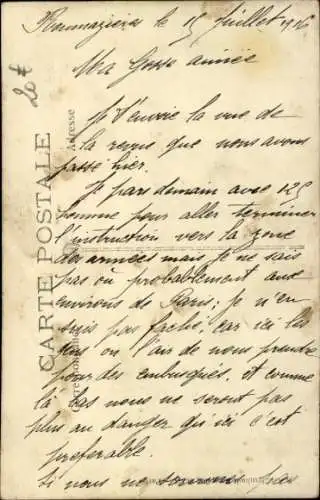 Roumazières le 15 Juillet 1916
Ma Gosse aimée
Je t'envoie la vue de
la revue que nous avons
passé hier.
Je pars demain avec 125
homme pour aller terminer
l'instruction vers la zone
des armées mais je ne sais
pas où probablement aux
environs de Paris; Je n'en
suis pas faché, car ici les
gens on l'air de nous prendre
pour des embusqués, et comme
là bas nous ne seront pas
plus au danger qu'ici c'est
preferable.
Si nous ne sommes pas
20€
CARTE POSTALE
Adresse
Correspondance